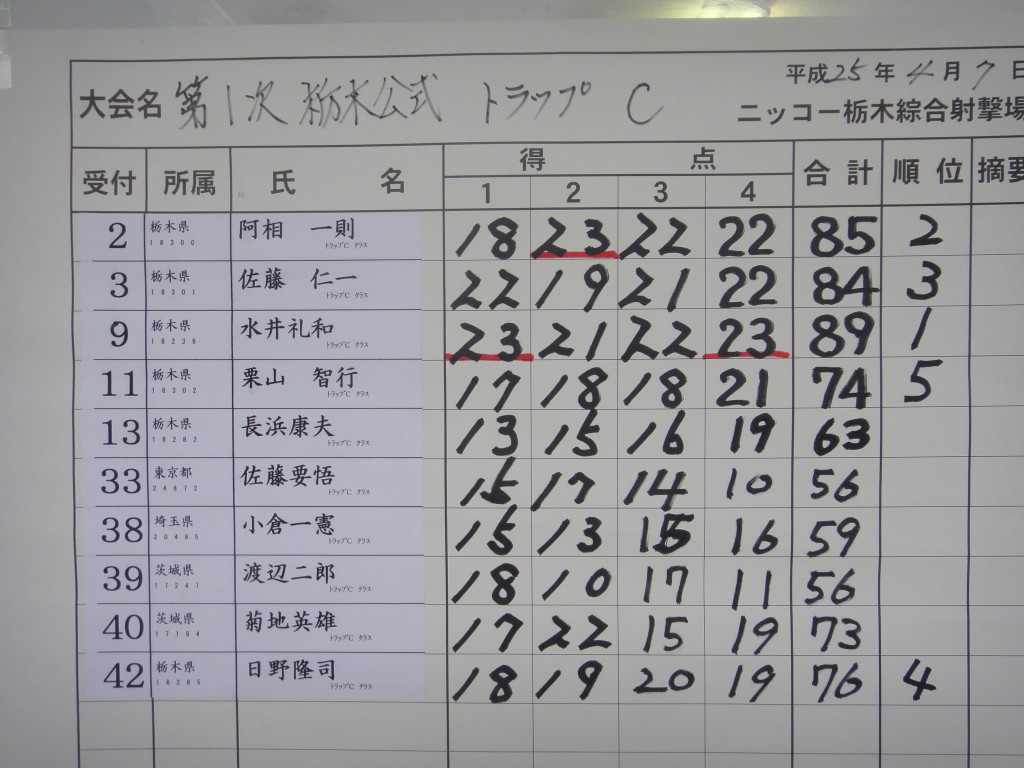 平成25年4月7日
大会名 第1次 栃木公式 トラップ C ニッコー栃木綜合射撃場
受付 所属 氏名 得点 合計 順位 摘要
1 2 3 4
2 栃木県 阿相 一則 18 23 22 22 85 2
18300 トラップC クラス
3 栃木県 佐藤 仁一 22 19 21 22 84 3
18301 トラップC クラス
9 栃木県 水井礼和 23 21 22 23 89 1
18239 トラップC クラス
11 栃木県 栗山 智行 17 18 18 21 74 5
18302 トラップC クラス
13 栃木県 長浜康夫 13 15 16 19 63
18282 トラップC クラス
33 東京都 佐藤要悟 15 17 14 10 56
24872 トラップC クラス
38 埼玉県 小倉一憲 15 13 15 16 59
20495 トラップC クラス
39 茨城県 渡辺二郎 18 10 17 11 56
17247 トラップC クラス
40 茨城県 菊地英雄 17 22 15 19 73
17194 トラップC クラス
42 栃木県 日野隆司 18 19 20 19 76 4
18285 トラップC クラス